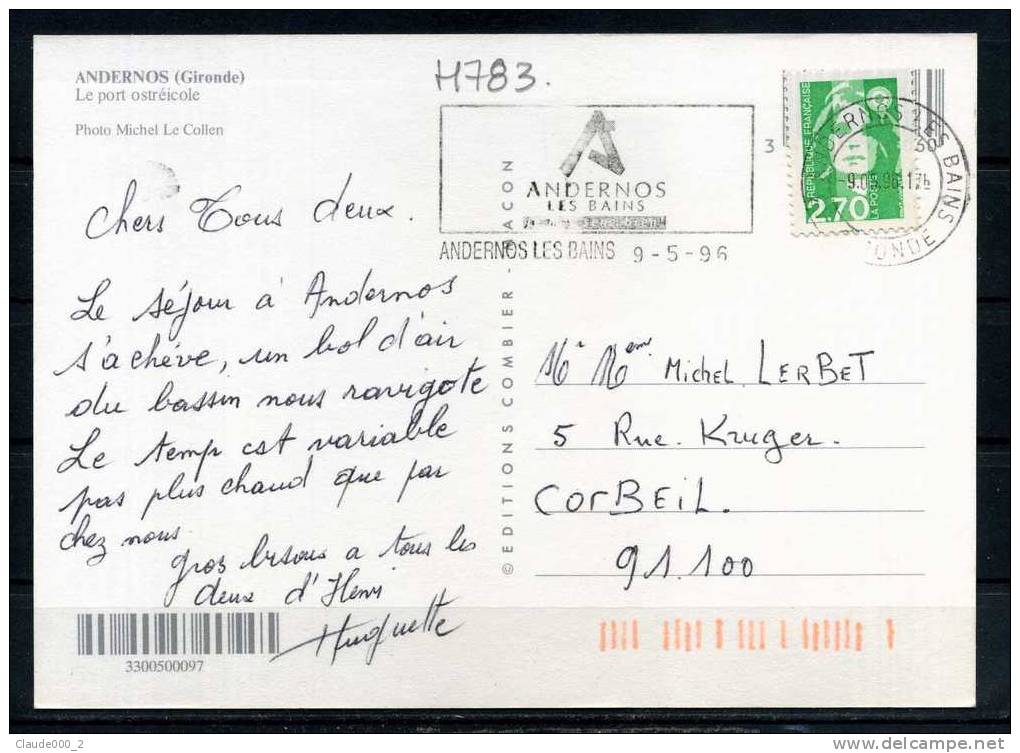 ANDERNOS (Gironde)
Le port ostréicole
Photo Michel Le Collen
H783.
3
ANDERNOS
LES BAINS
ANDERNOS LES BAINS 9-5-96
RÉPUBLIQUE FRANÇAISE
2.70
LA POSTE
ANDERNOS LES BAINS
GIRONDE
Chers Tous deux.
Le séjour à Andernos
s'achève, un bol d'air
du bassin nous ravigote
Le temps est variable
pas plus chaud que par
chez nous.
gros bisous a tous les
deux d'Henri
Huguette
© EDITIONS COMBIER - MACON
Mr Mem Michel LERBET
5 Rue. Kruger.
CORBEIL.
91.100
3300500097
Claude000_2
www.delcampe.net